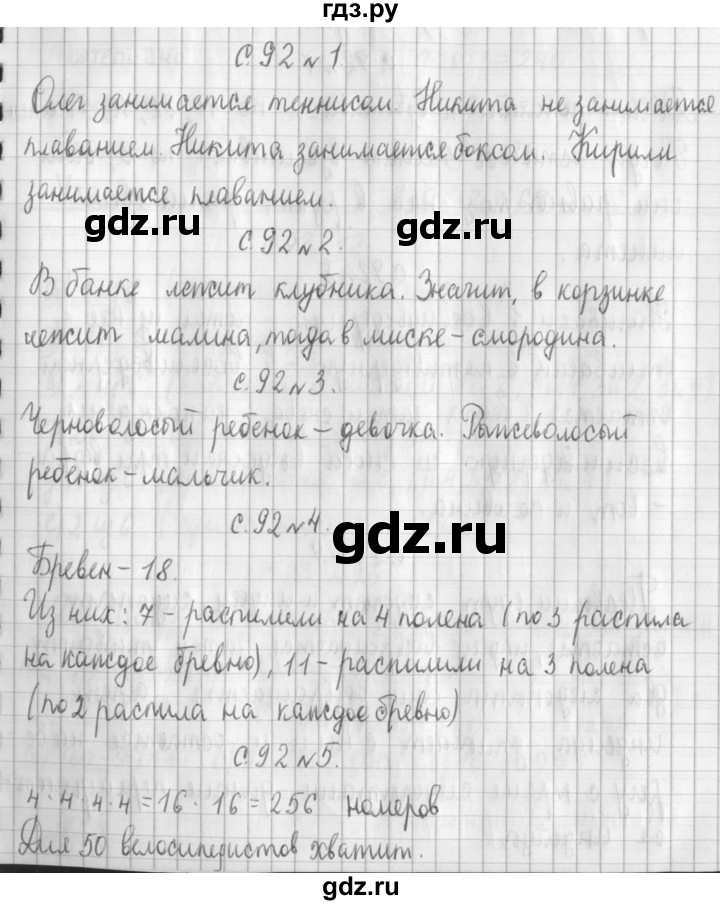 гдз.ру
с.92 №1.
Олег занимается теннисом. Никита не занимается
плаванием. Никита занимается боксом. Кирилл
занимается плаванием.
gdz.ru
gdz.ru
с.92 №2.
В банке лежит клубника. Значит, в корзинке
лежит малина, тогда в миске – смородина.
с.92 №3.
Черноволосый ребенок – девочка. Рыжеволосый
ребенок – мальчик.
с.92 №4.
gdz.ru
Бревен – 18.
Из них: 7 – распилили на 4 полена (по 3 распила
на каждое бревно), 11 – распилили на 3 полена
(по 2 распила на каждое бревно)
с.92 №5.
4 · 4 · 4 · 4 = 16 · 16 = 256 номеров
Для 50 велосипедистов хватит.
gdz.ru